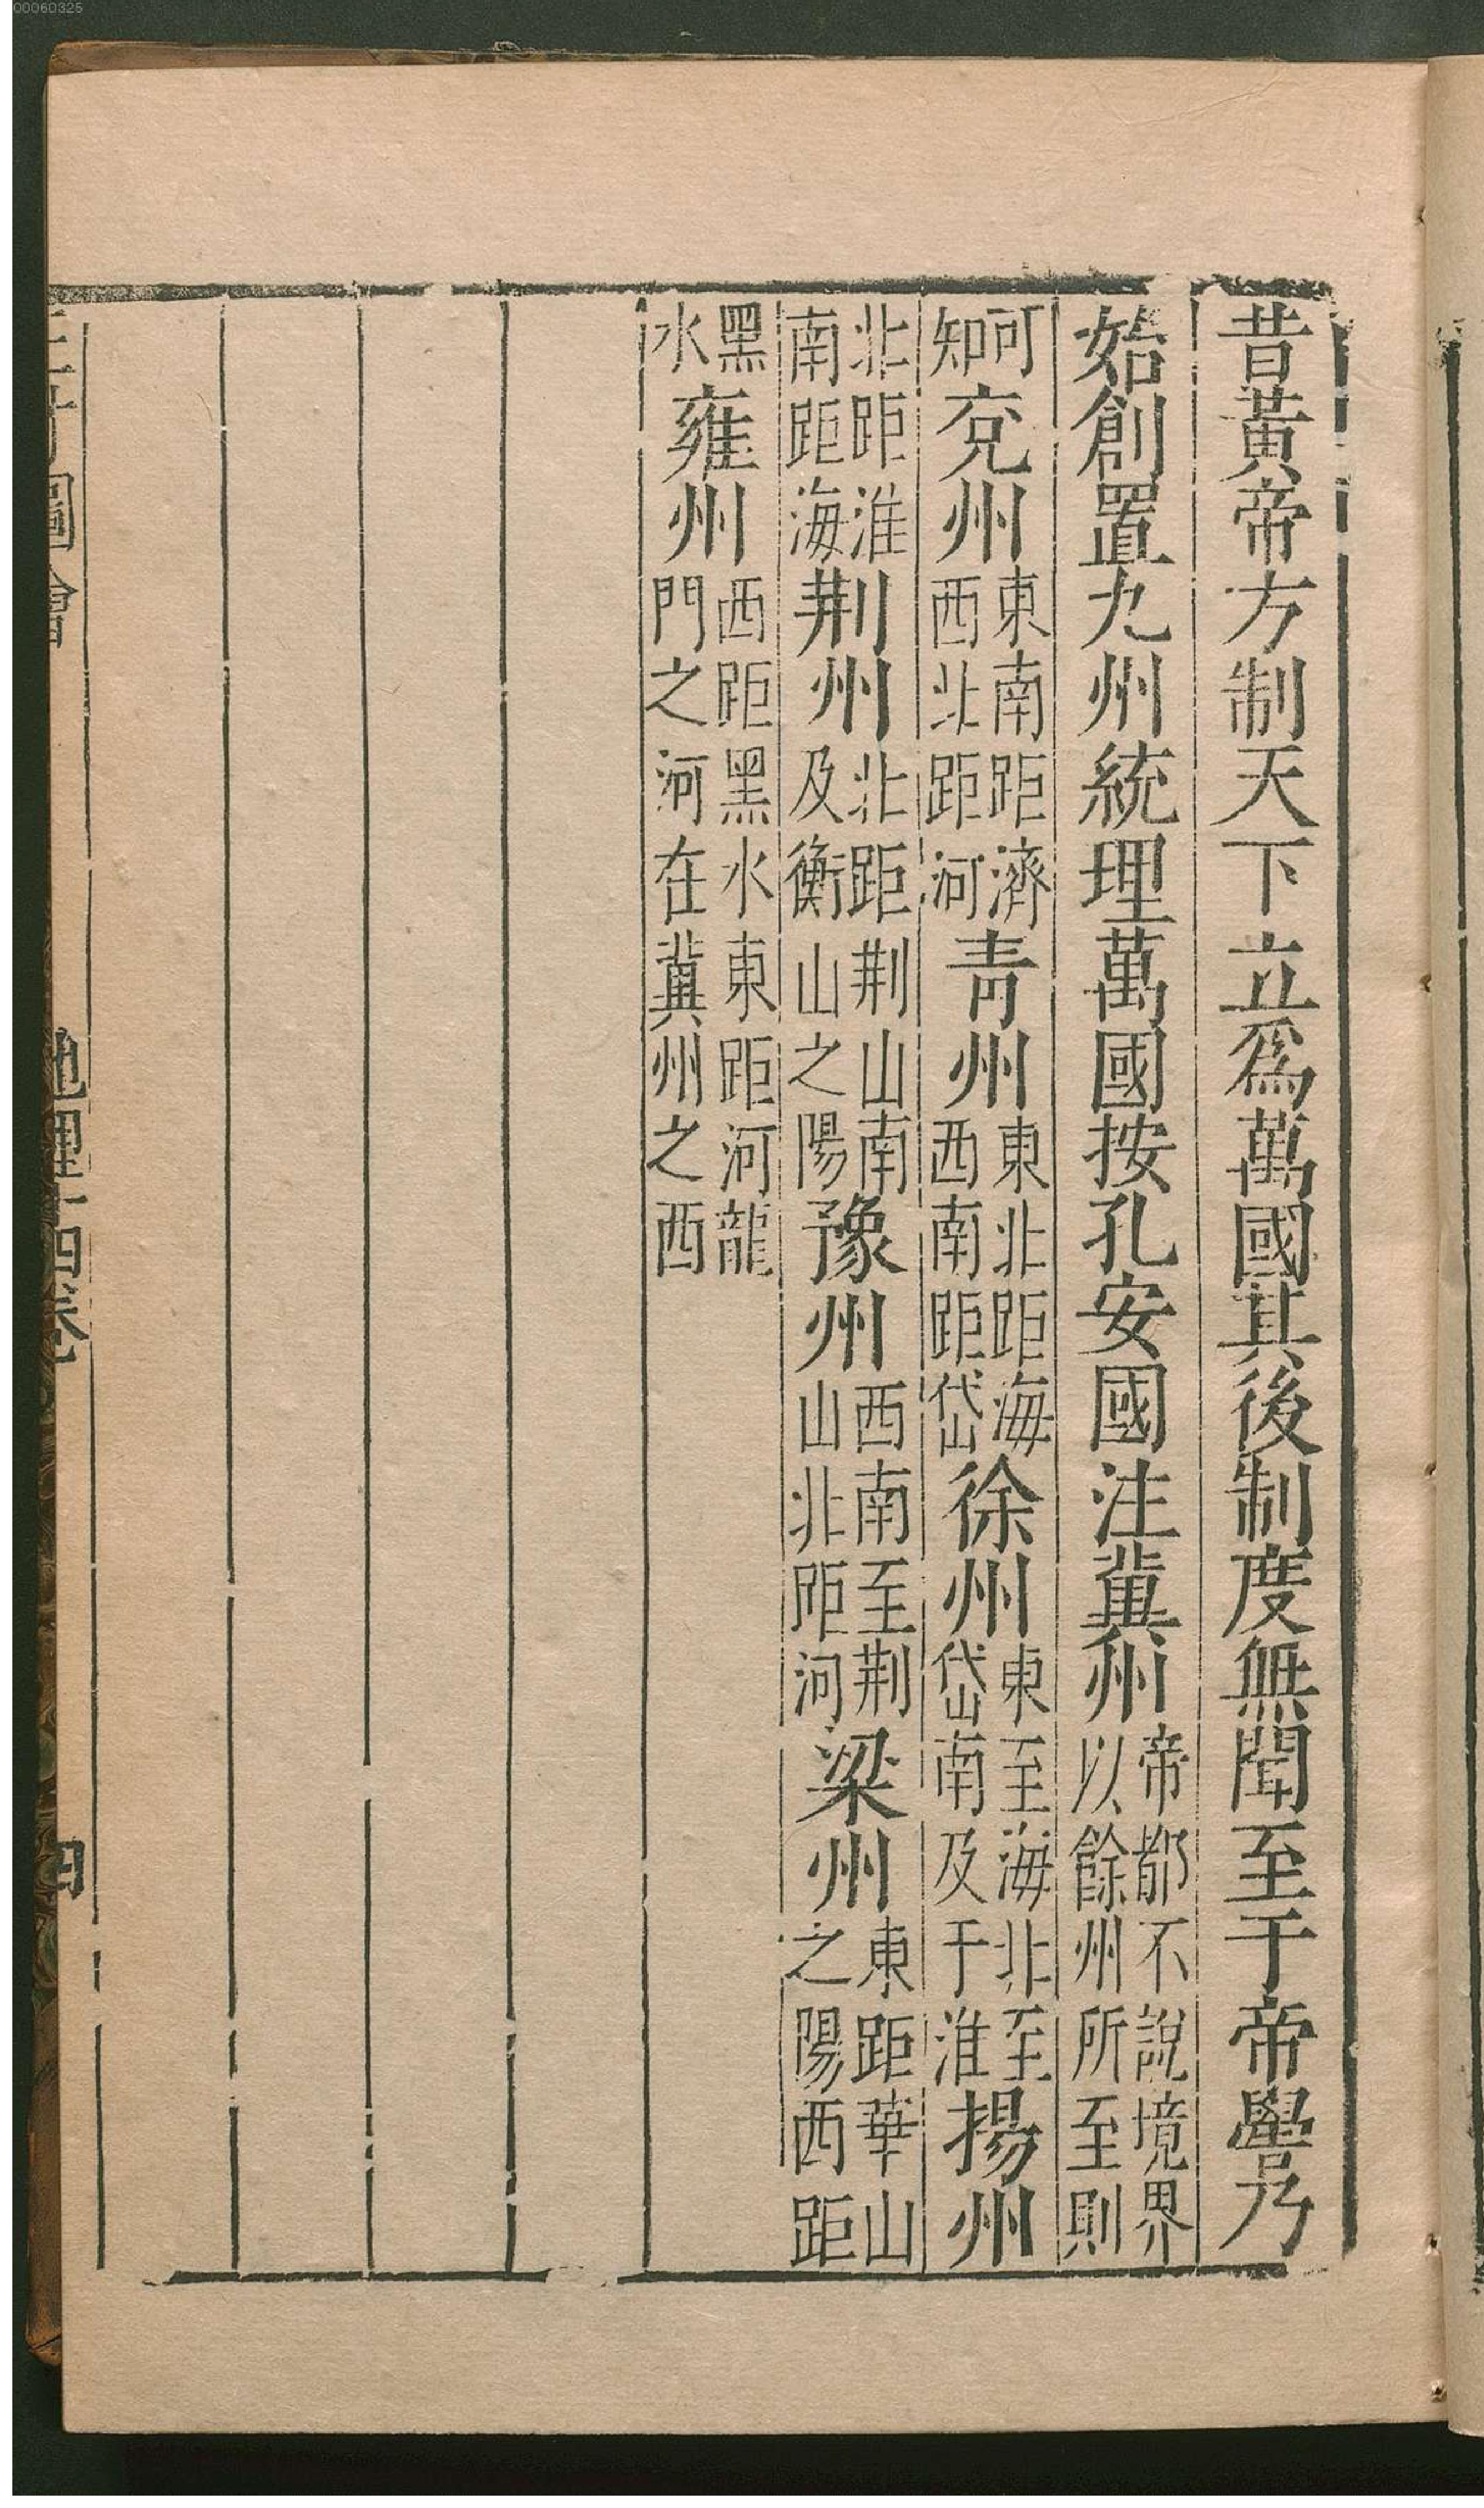 00060325
昔黃帝方制天下立爲萬國其後制度無聞至于帝嚳乃
始創置九州統理萬國按孔安國注冀州帝都不說境界以餘州所至則
可知兗州東南距濟西北距河青州東北距海西南距岱徐州東至海北至岱南及于淮揚州
北距淮南距海荆州北距荆山南及衡山之陽豫州西南至荆山北距河梁州東距華山之陽西距
黑水雍州西距黑水東距河龍門之河在冀州之西
圖會
地理十四卷
四